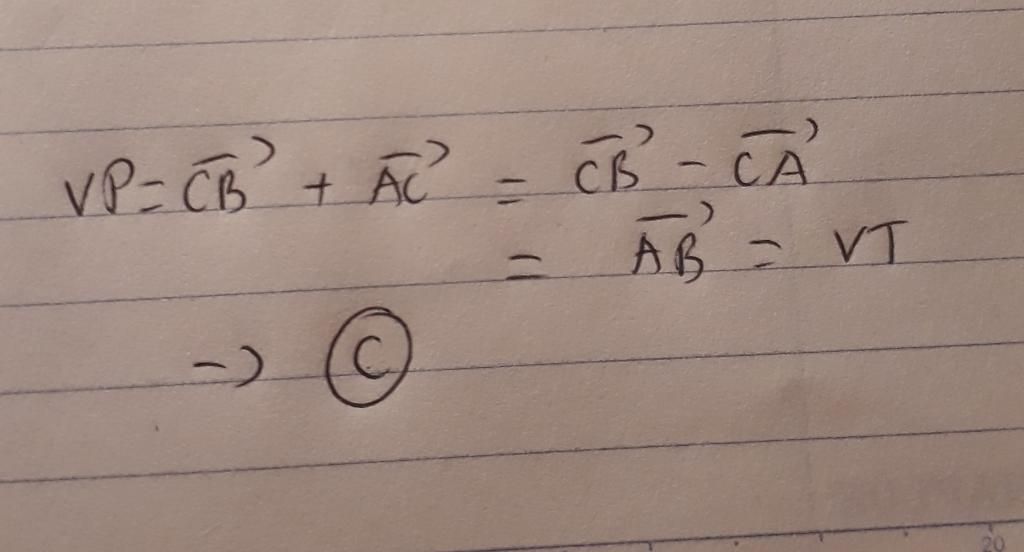 VP = \overrightarrow{CB} + \overrightarrow{AC} = \overrightarrow{CB} - \overrightarrow{CA}
= \overrightarrow{AB} = VT
→ C
20